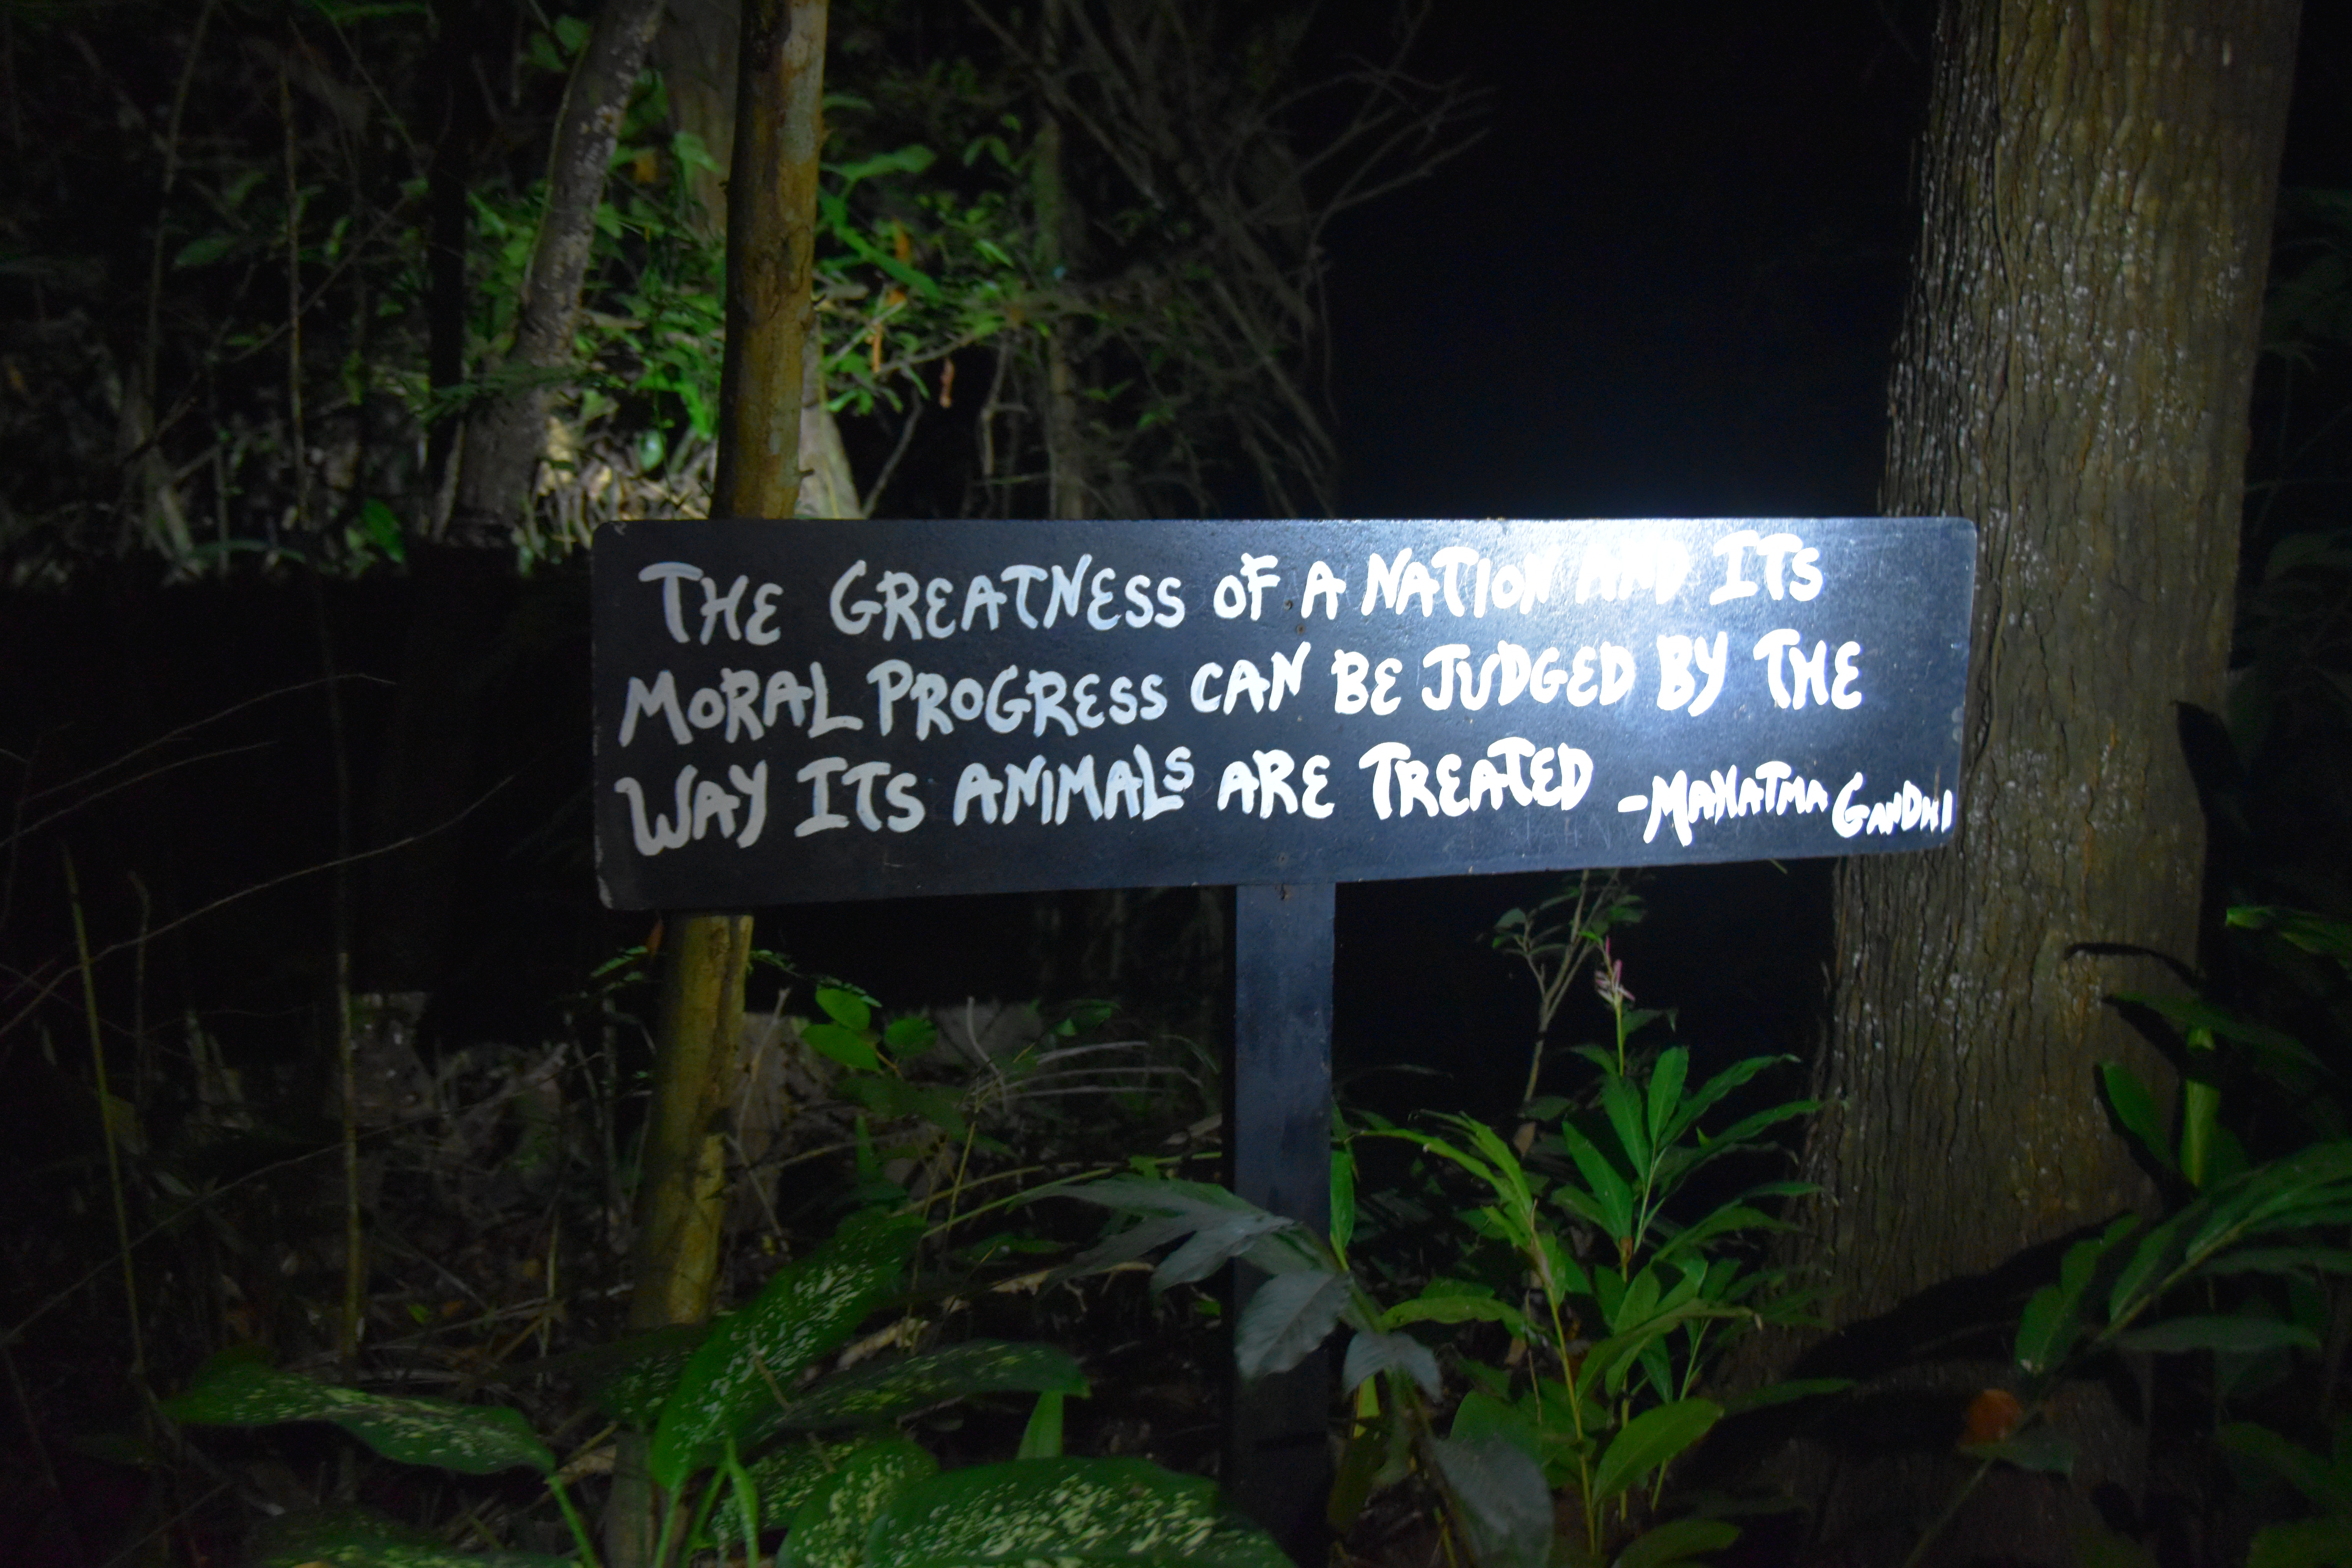 THE GREATNESS OF A NATION AND ITS
MORAL PROGRESS CAN BE JUDGED BY THE
WAY ITS ANIMALS ARE TREATED -MAHATMA GANDHI